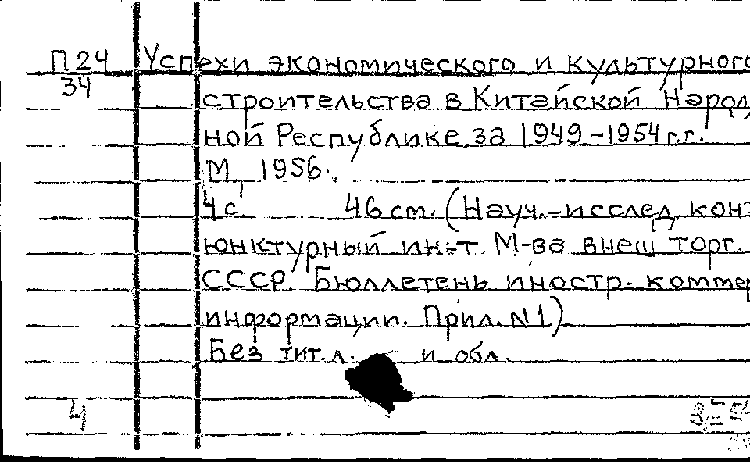 П24 Успехи экономического и культурного
34
строительства в Китайской Народ
ной Республике за 1949-1954 г.г.
М, 1956.
4 с. 46 см. (Науч.-исслед конъ
юнктурный ин-т М-ва внеш торг.
СССР. Бюллетень иностр. коммер
информации. Прил. №1)
Без тит.л. и обл.
4